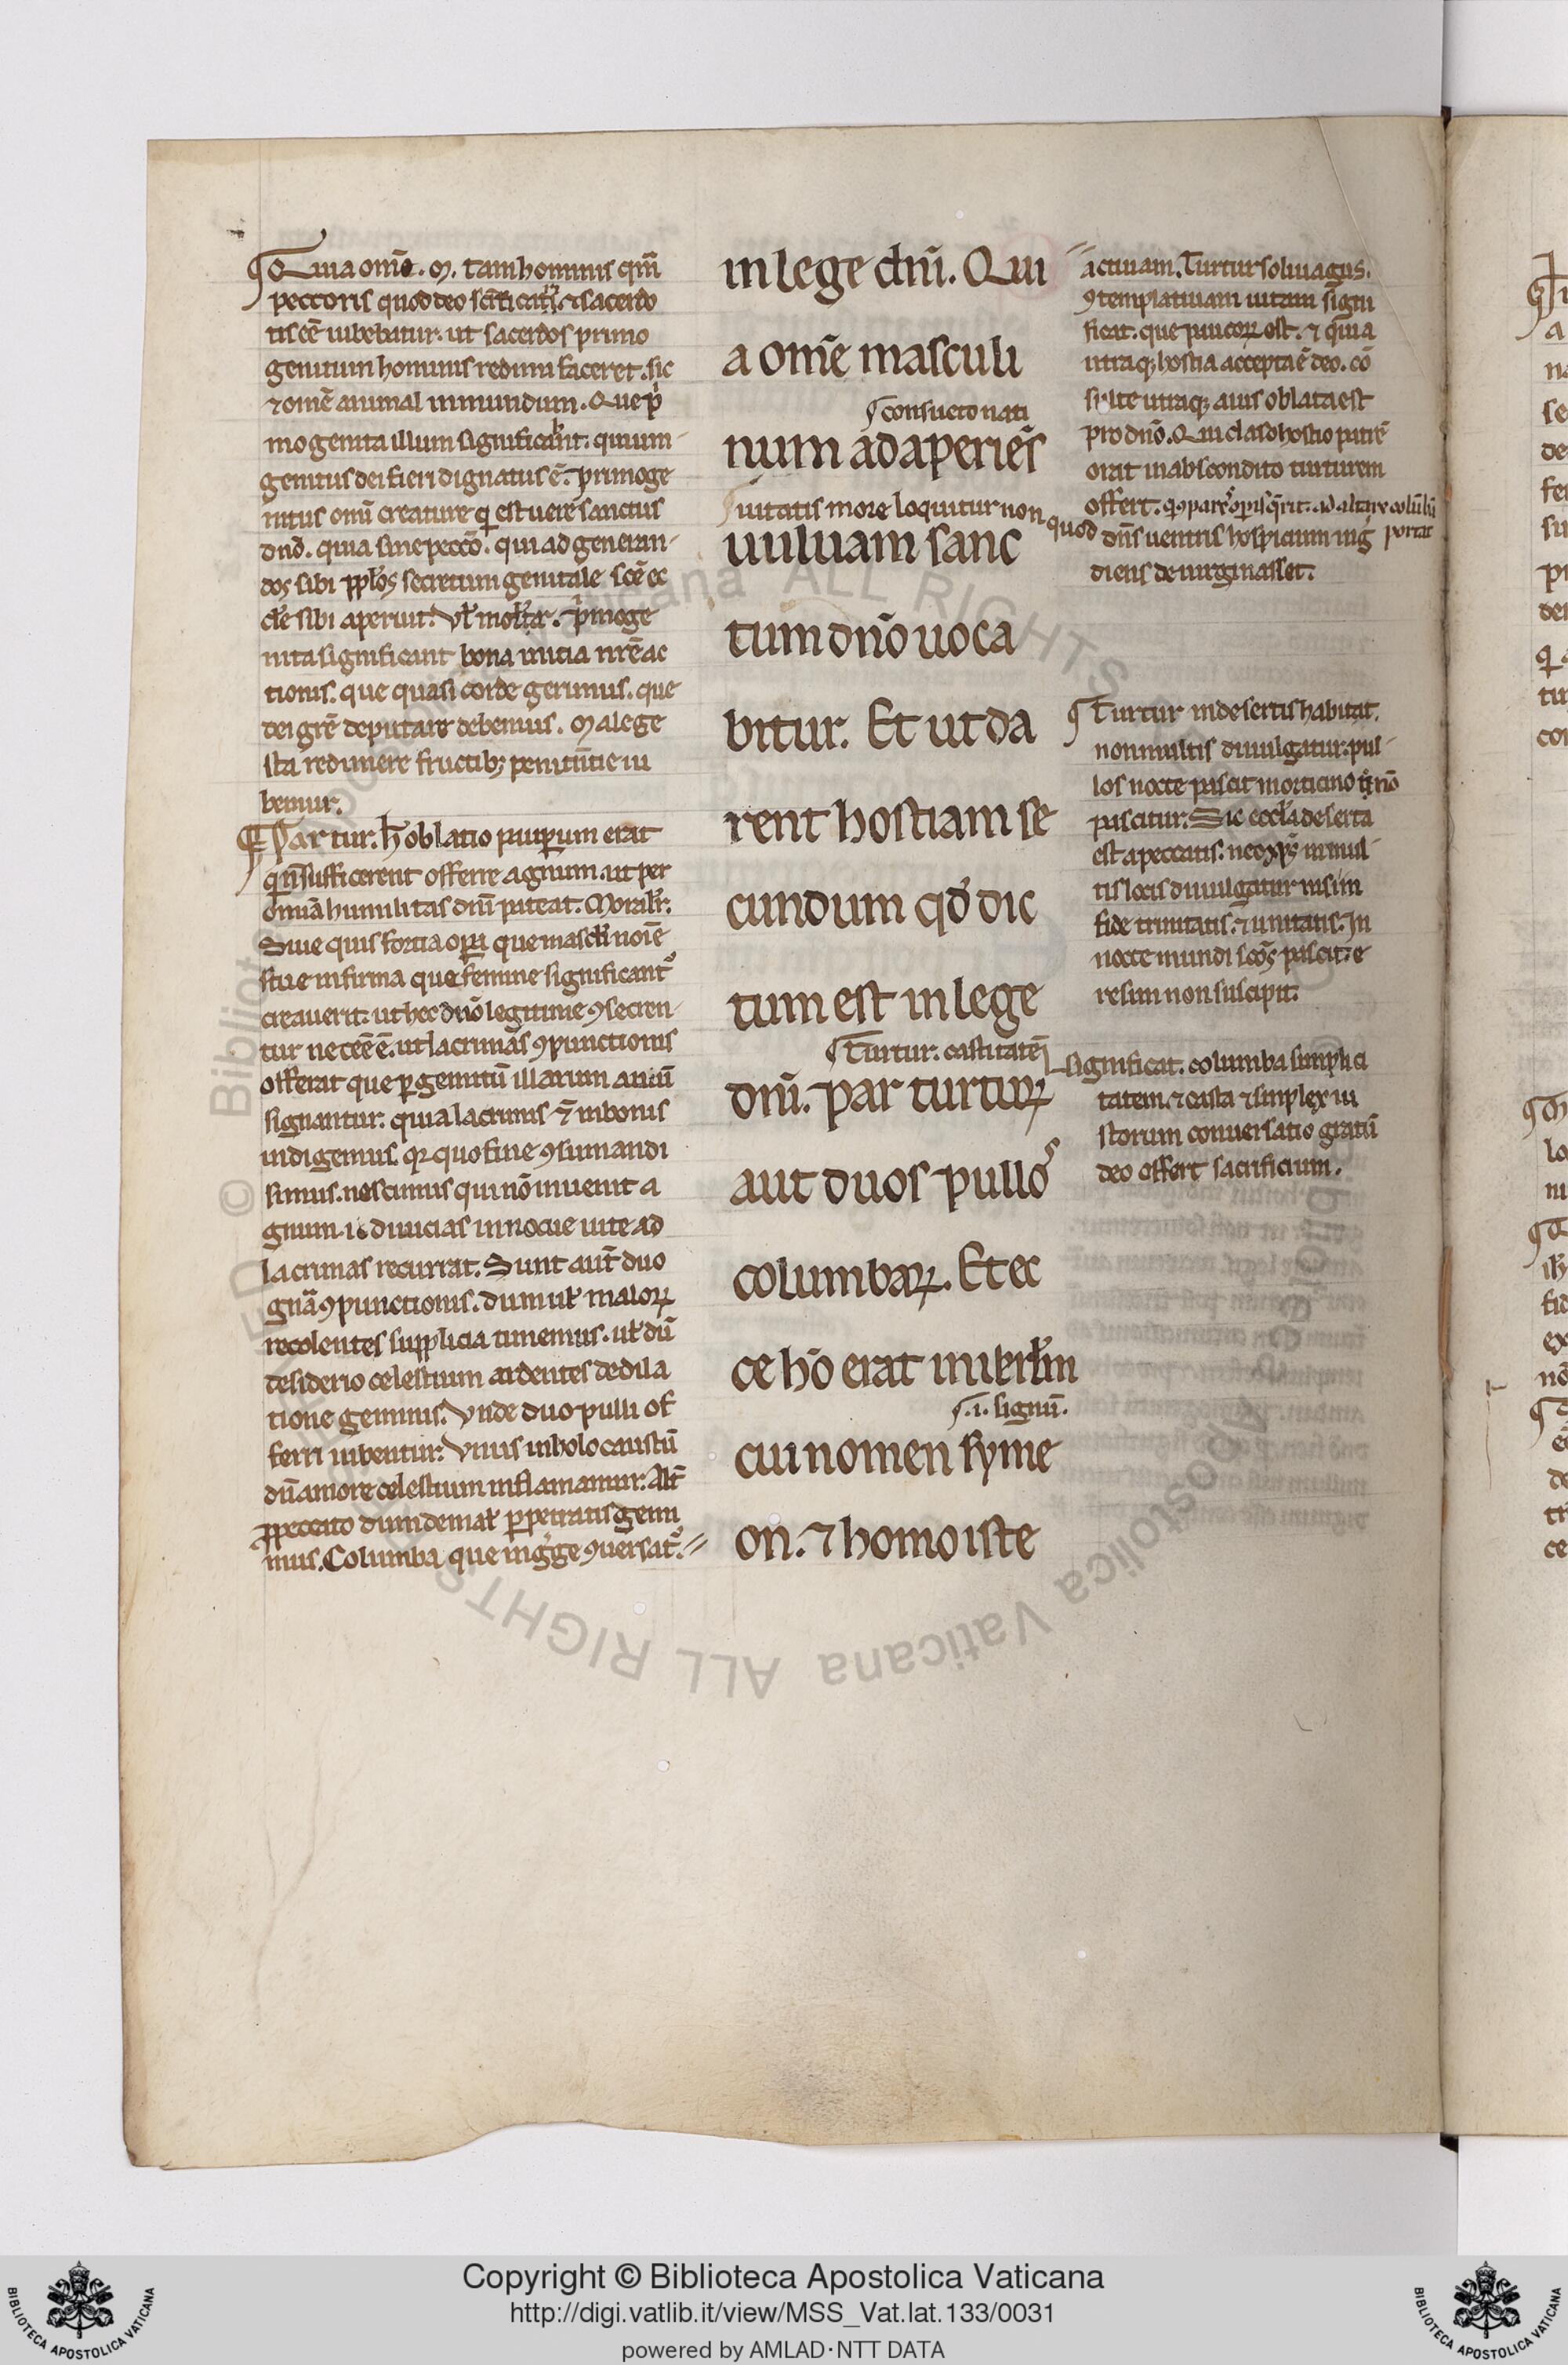 Quia om̄e. m̄. tam hominis qm̄
peccoris quod deo sc̄ificat᷑. ⁊ sacerdo
tis eē iubebatur. ut sacerdos primo
genitum hominis redimi faceret. sic
⁊ omē animal inmundum. Que p̄
mogenita illum significabant. qui um
genitus dei fieri dignatus ē. primoge
nitus oniū creature q est uere sanctus
dnō. quia sine peccō. qui ad generan
dos sibi pplos secretum genitale scē ec
cle sibi aperuit. Vl moralr. p̄moge
nita significant bona initia nrē ac
tionis. que quasi corde gerimus. que
dei grē deputare debemus. Malege
sta redimere fructibꝫ penitn̄tie iu
bemur.
Par tur. h oblatio pauꝑum erat
q n̄ sufficerent offerre agnum. ut per
omnia humilitas dnī pateat. Moralr.
Siue quis fortia oꝑa que masclī noīe
siue infirma que femine significant᷑
creauerit. ut hec dnō legitime ꝯsecren
tur neceē ē. ut lacrimas ꝯpunctionis
offerat que ꝑ gemitū illarum auiū
signantur. quia lacrimis ⁊ in bonis
indigemus. qꝛ quo fine ꝯsumandi
simus. nescimus qui nō inuenit a
gnum. i. diuicias innocue uite. ad
lacrimas recurrat. Sunt aut duo
gn̄a ꝯpunctionis. dum ut maloꝝ
recolentes supplicia timemus. ut dū
desiderio celestium ardentes de dila
tione gemimus. Vnde duo pulli of
ferri iubentur. Vnus in holocaustū
dū amore celestium inflamamur. Alt
ꝓ peccato dum de mał ꝑpetratis gemi
mus. Columba que in g̊ge ꝯuersat᷑.
in lege dnī. Qui
a om̄e masculi
consueto nati
num adaperiēs
uitatis more loquitur non quod
uuluam sanc
tum dnō uoca
bitur. Et ut da
rent hostiam se
cundum qd dic
tum est in lege
Turtur. castitatē
dnī. par turturꝝ
aut duos pullos
columbaꝝ. Et ec
ce hō erat in ierlm
.i. lignū.
cui nomen syme
on. ⁊ homo iste
actiuam. Turtur soliuagus.
ꝯtemplatiuam uitam signi
ficat. que paucoꝝ est. ⁊ quia
utraqꝫ hostia accepta ē deo. cō
sulte utraqꝫ auis oblata est
pro dnō. Qui claso hostio patrē
orat in abscondito turturem
offert. q ꝯpares oꝑis q̄rit. ad altare colūbā portat
dn̄s uentris hospicium ing̊
diens deuirginasset.
Turtur in desertis habitat.
non multis diuulgatur. pul
los nocte pascit morticino nō
pascitur. Sic eccla deserta
est a peccatis. nec xp̄s in mul
tis locis diuulgatur nisi in
fide trinitatis. ⁊ unitatis. In
nocte mundi scōs pascit. e
resim non suscipit.
significat. columba simplici
tatem. ⁊ casta ⁊ simplex iu
storum conuersatio gratū
deo offert sacrificium.
Copyright © Biblioteca Apostolica Vaticana
http://digi.vatlib.it/view/MSS_Vat.lat.133/0031
powered by AMLAD·NTT DATA